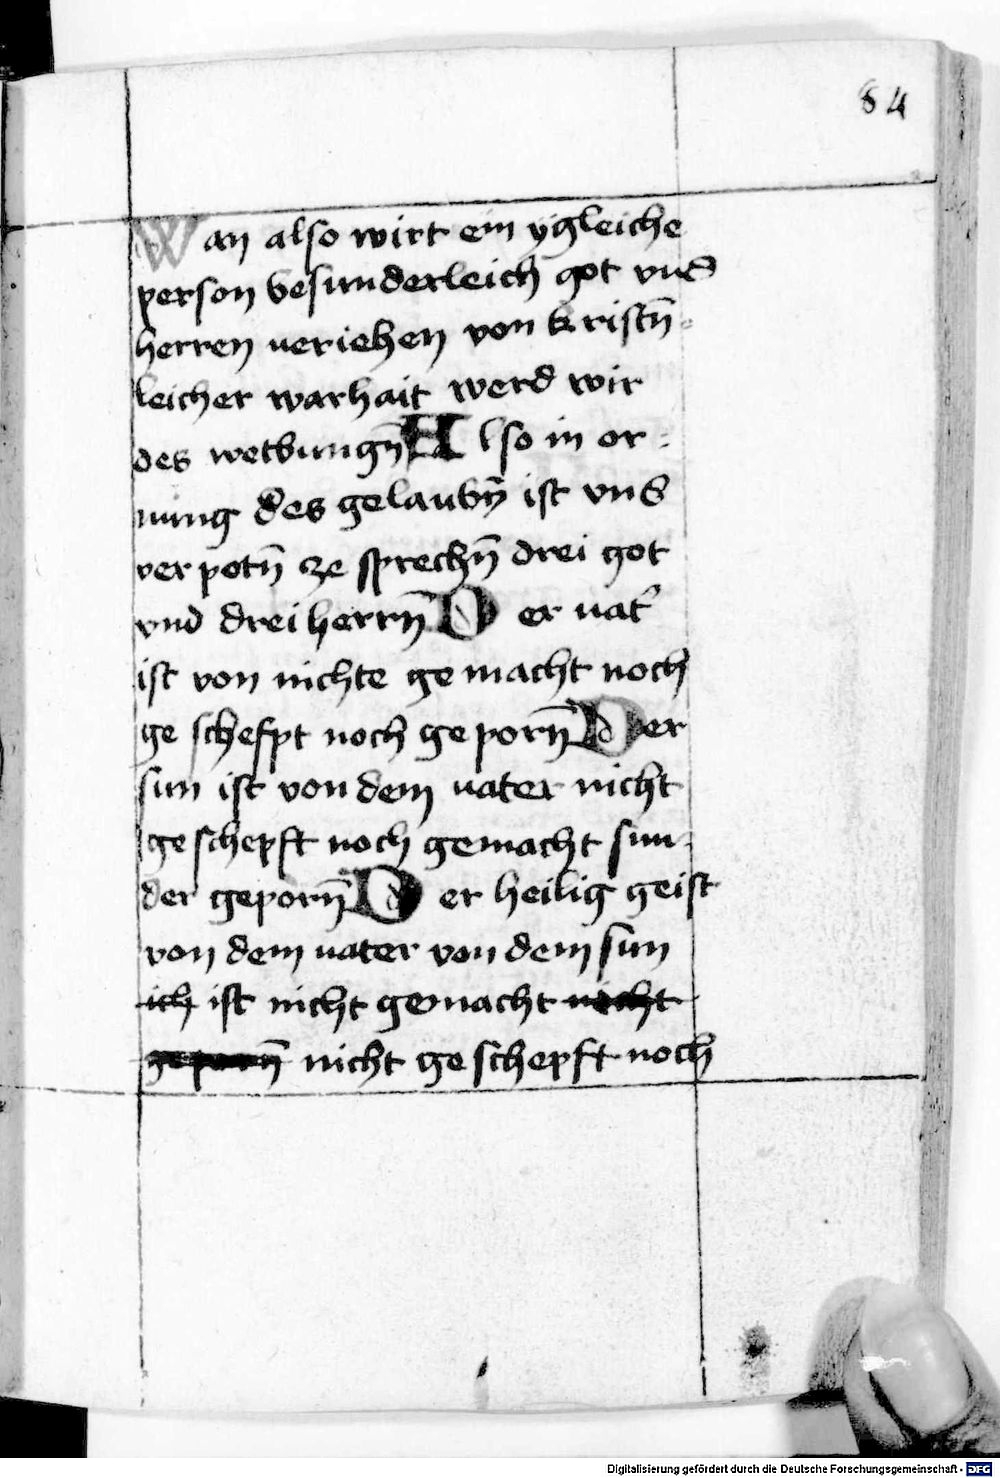 84
Wan also wirt ein ygleiche
person besunderleich got vnd
herren veriehen von kristn̄
leicher warhait werd wir
des wetbungn̄ Also in or:
nung des gelaubn̄ ist vns
verpotn̄ ze sprechn̄ drei got
vnd drei herrn̄ Der uat'
ist von nichte gemacht noch
geschefpt noch geporn̄ Der
sun ist von dem uater nicht
geschepft noch gemacht sun-
der geporn̄ Der heilig geist
von dem uater von dem sun
ich ist nicht gemacht necht
geporn̄ nicht geschepft noch
Digitalisierung gefördert durch die Deutsche Forschungsgemeinschaft - DFG